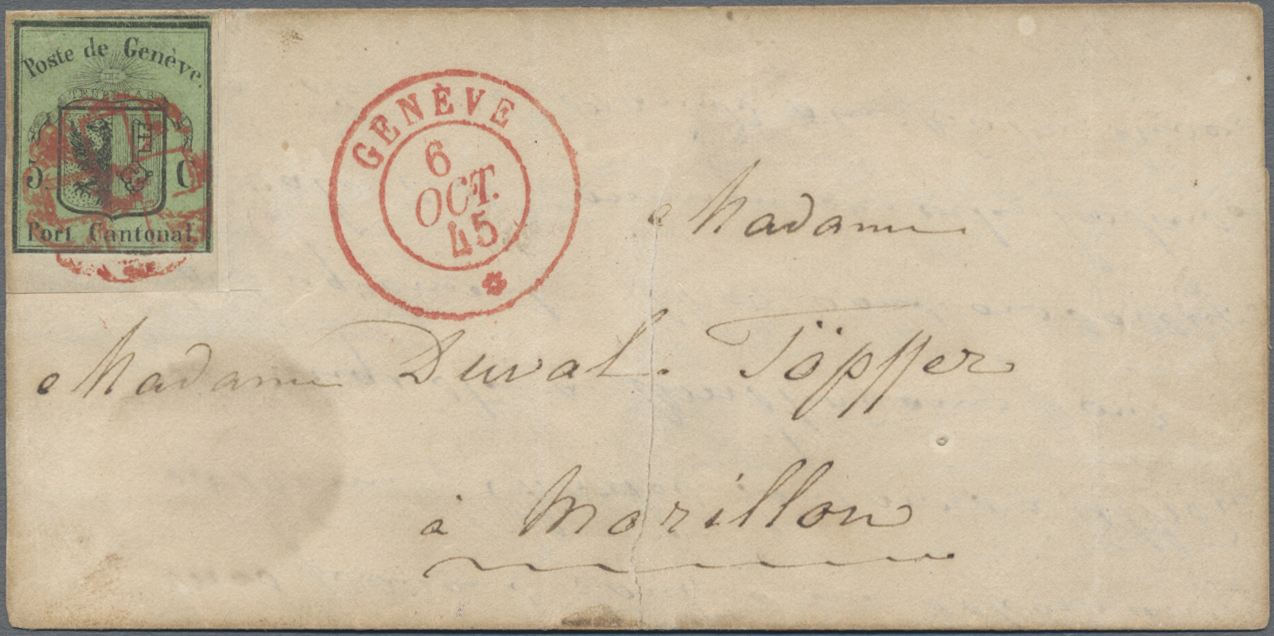 Poste de Genève.
5 C
Port Cantonal.
GENÈVE
6
OCT.
45
Madame
Madame Duval. Töpffer
à Morillon